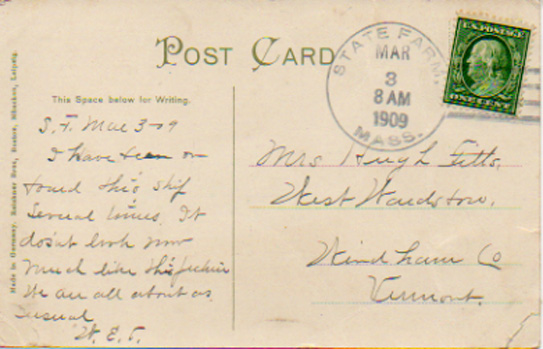 POST CARD
This Space below for Writing.
S.F. Mar 3-09
I have been on
board this ship
several times. It
dosnt look now
much like this picture
We are all about as
usual
W. E. F.
STATE FARM,
MAR
3
8 AM
1909
MASS.
U.S. POSTAGE
ONE CENT
Mrs Hugh Fitts,
West Wardsboro,
Windham Co
Vermont.
Made in Germany,
Leipzig.